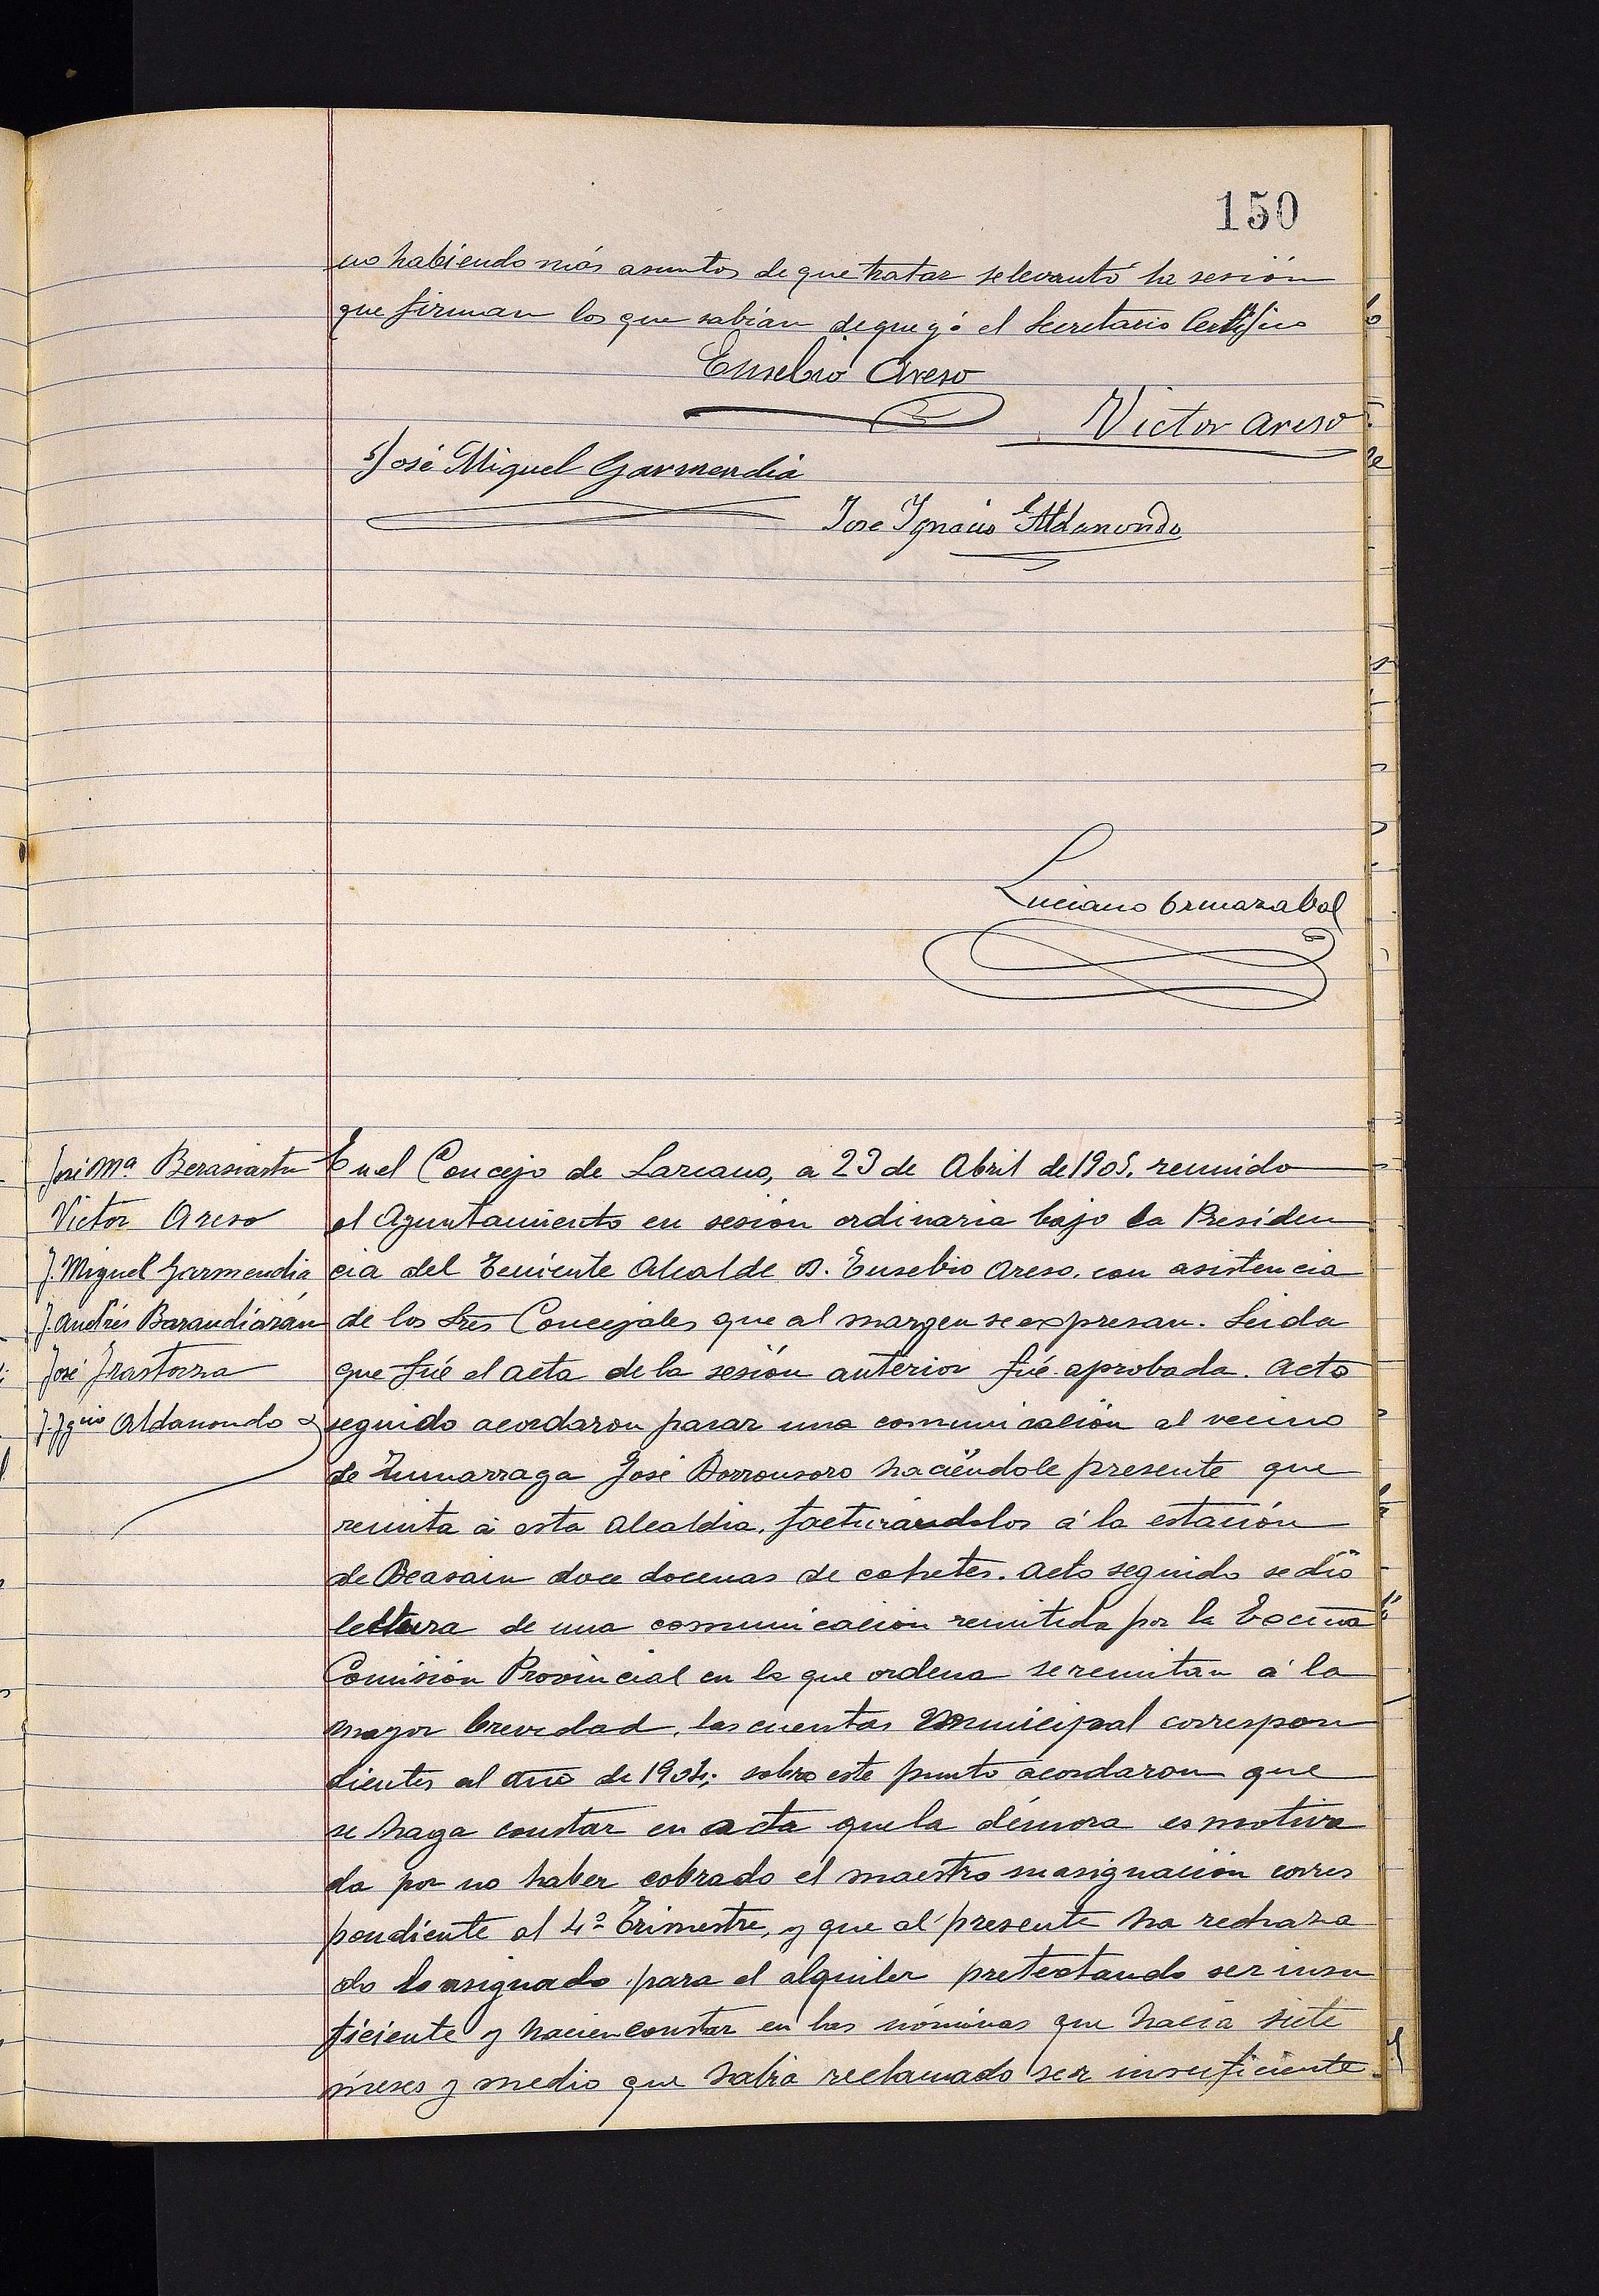 150
no habiendo más asuntos de que tratar se levantó la sesión
que firman los que sabían de que yó el Secretario Certifico
Eusebio Areso
Victor Areso
José Miguel Garmendia
José Ignacio Aldanondo
Luciano Ormazabal
José Mª Berasiartu
Victor Areso
J. Miguel Garmendia
J. Andrés Barandiarán
José Irastorza
J. Igcio Aldanondo
En el Concejo de Lazcano, a 23 de Abril de 1905, reunido
el Ayuntamiento en sesión ordinaria bajo la Presiden
cia del Teniente Alcalde D. Eusebio Areso, con asistencia
de los Sres Concejales que al margen se expresan. Leida
que fué el acta de la sesión anterior fué aprobada. Acto
seguido acordaron pasar una comunicación al vecino
de Zumarraga José Dorronsoro haciéndole presente que
remita á esta Alcaldia, facturándolos á la estación
de Beasain doce docenas de cohetes. Acto seguido se dió
lectura de una comunicación remitida por la Excma
Comisión Provincial en la que ordena se remitan á la
mayor brevedad, las cuentas municipal correspon
dientes al año de 1904; sobre este punto acordaron que
se haga constar en acta que la démora es motiva
da por no haber cobrado el maestro su asignación corres
pondiente al 4º Trimestre, y que al presente ha rechaza
do lo asignado para el alquiler pretextando ser insu
ficiente y hacien constar en las nóminas que hacía siete
meses y medio que habia reclamado ser insuficiente.